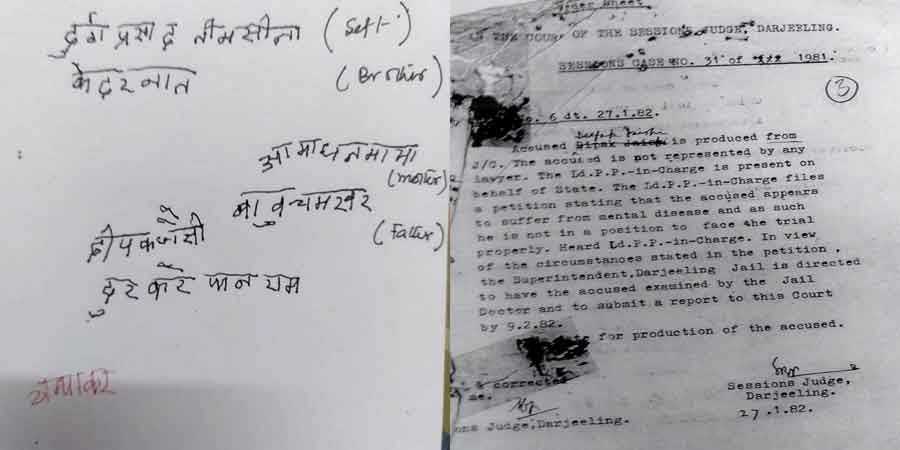 दुर्गा प्रसाद तीमसीना (Self)
(Brother)
आमा धनमाया
(mother)
(Father)
Order Sheet
IN THE COURT OF THE SESSIONS JUDGE, DARJEELING.
SESSIONS CASE NO. 31 of 1981.
3
6 dt. 27.1.82.
Deepak Jaishi
Accused Dipak Jaishi is produced from
J/C. The accused is not represented by any
lawyer. The Ld.P.P.-in-Charge is present on
behalf of State. The Ld.P.P.-in-Charge files
a petition stating that the accused appears
to suffer from mental disease and as such
he is not in a position to face the trial
properly. Heard Ld.P.P.-in-Charge. In view
of the circumstances stated in the petition,
the Superintendent,Darjeeling Jail is directed
to have the accused examined by the Jail
Doctor and to submit a report to this Court
by 9.2.82.
for production of the accused.
& corrected
me.
Sessions Judge,
Darjeeling.
27.1.82.
ons Judge,Darjeeling.